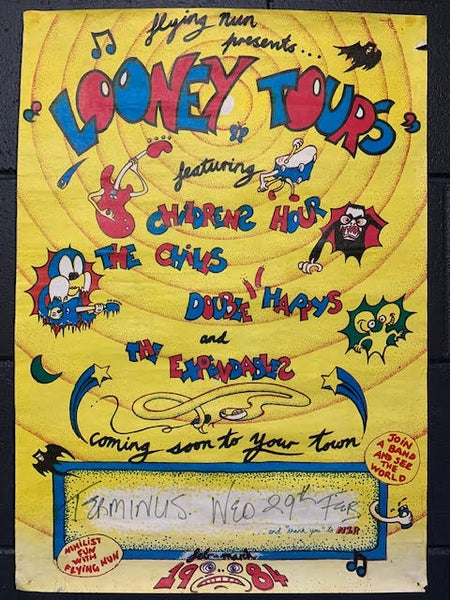 flying nun
presents...
LOONEY TOURS
featuring
CHILDRENS HOUR
THE CHILLS
DOUBLE HAPPYS
and
THE EXPENDABLES
coming soon to your town
JOIN
A BAND
AND SEE
THE
WORLD
TERMINUS. WED 29th FEB
and "thank you" to NZR
NIHILIST
FUN
WITH
FLYING NUN
feb - march
1984